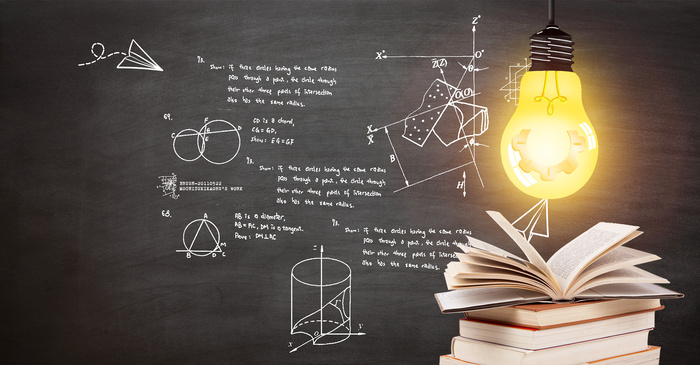 73.
Show: if three circles having the same radius
pass through a point, the circle through
their other three points of intersection
also has the same radius.
69.
CD is a chord,
CG = GD,
Show: EG = GF
C
F
E
D
73.
Show: if three circles having the same radius
pass through a point, the circle through
their other three points of intersection
also has the same radius.
68.
AB is a diameter,
AB = AC, DM is a tangent.
Prove: DM⊥AC
A
B
D
C
M
73.
Show: if three circles having the same radius
pass through a point, the circle through
their other three points of intersection
also has the same radius.
Z*
X*
O*
Z(Z)
O(O)
X
X
B
H
Z
O
X
Y